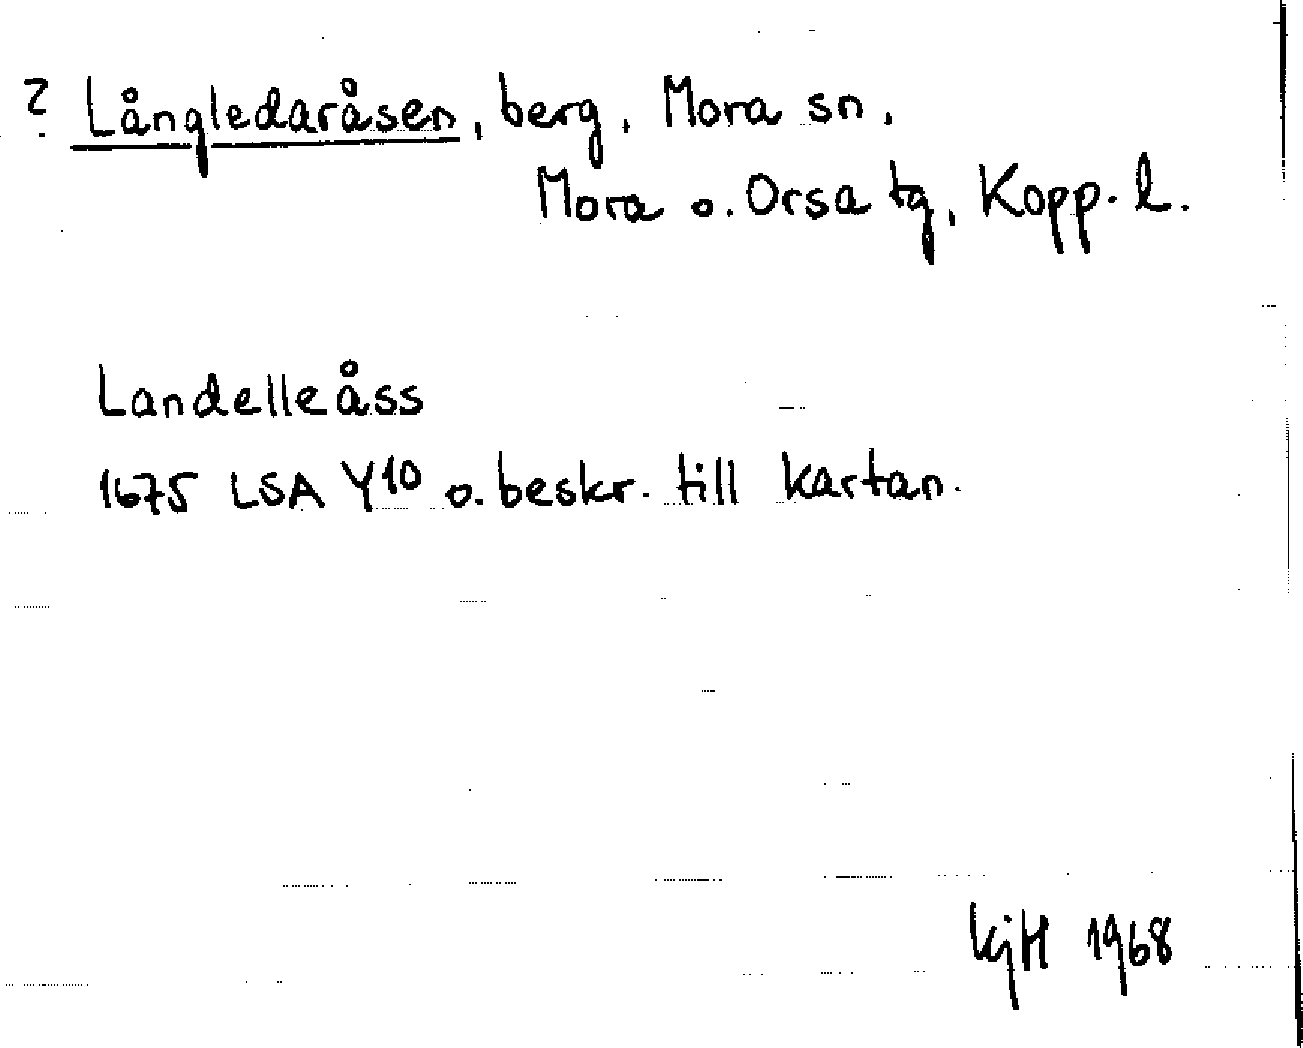 ? Långledaråsen, berg, Mora sn,
Mora o. Orsa tg, Kopp. l.
Landelleåss
1675 LSA Y10 o. beskr. till kartan.
KjH 1968